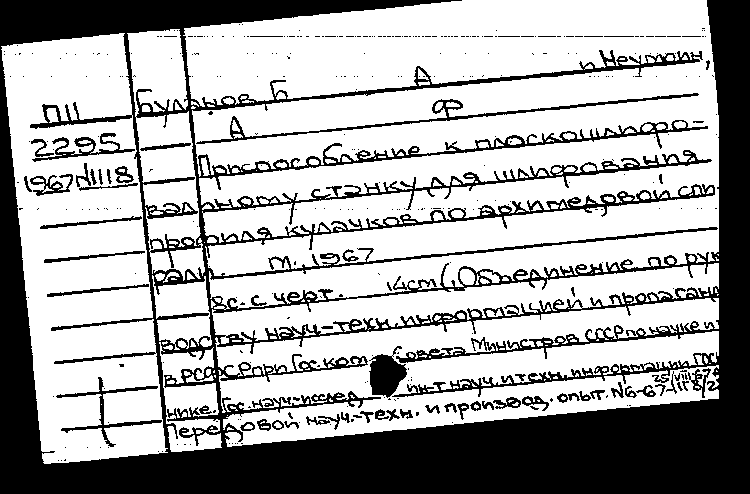 П11
2295
1967 N1118
Буланов, Б А и Неумоин,
А Ф
Приспособление к плоскошлифо-
вальному станку для шлифования
профиля кулачков по архимедовой спи-
рали. М., 1967
8с. с черт. 14см (Объединение по рук
водству науч-техн. информацией и пропаганд
в РСФСР при Гос. ком. Совета Министров СССР по науке и
нике. Гос. науч-исслед. ин-т науч. и техн. информации
Передовой науч.-техн. и производ. опыт. N6-67-1118/2